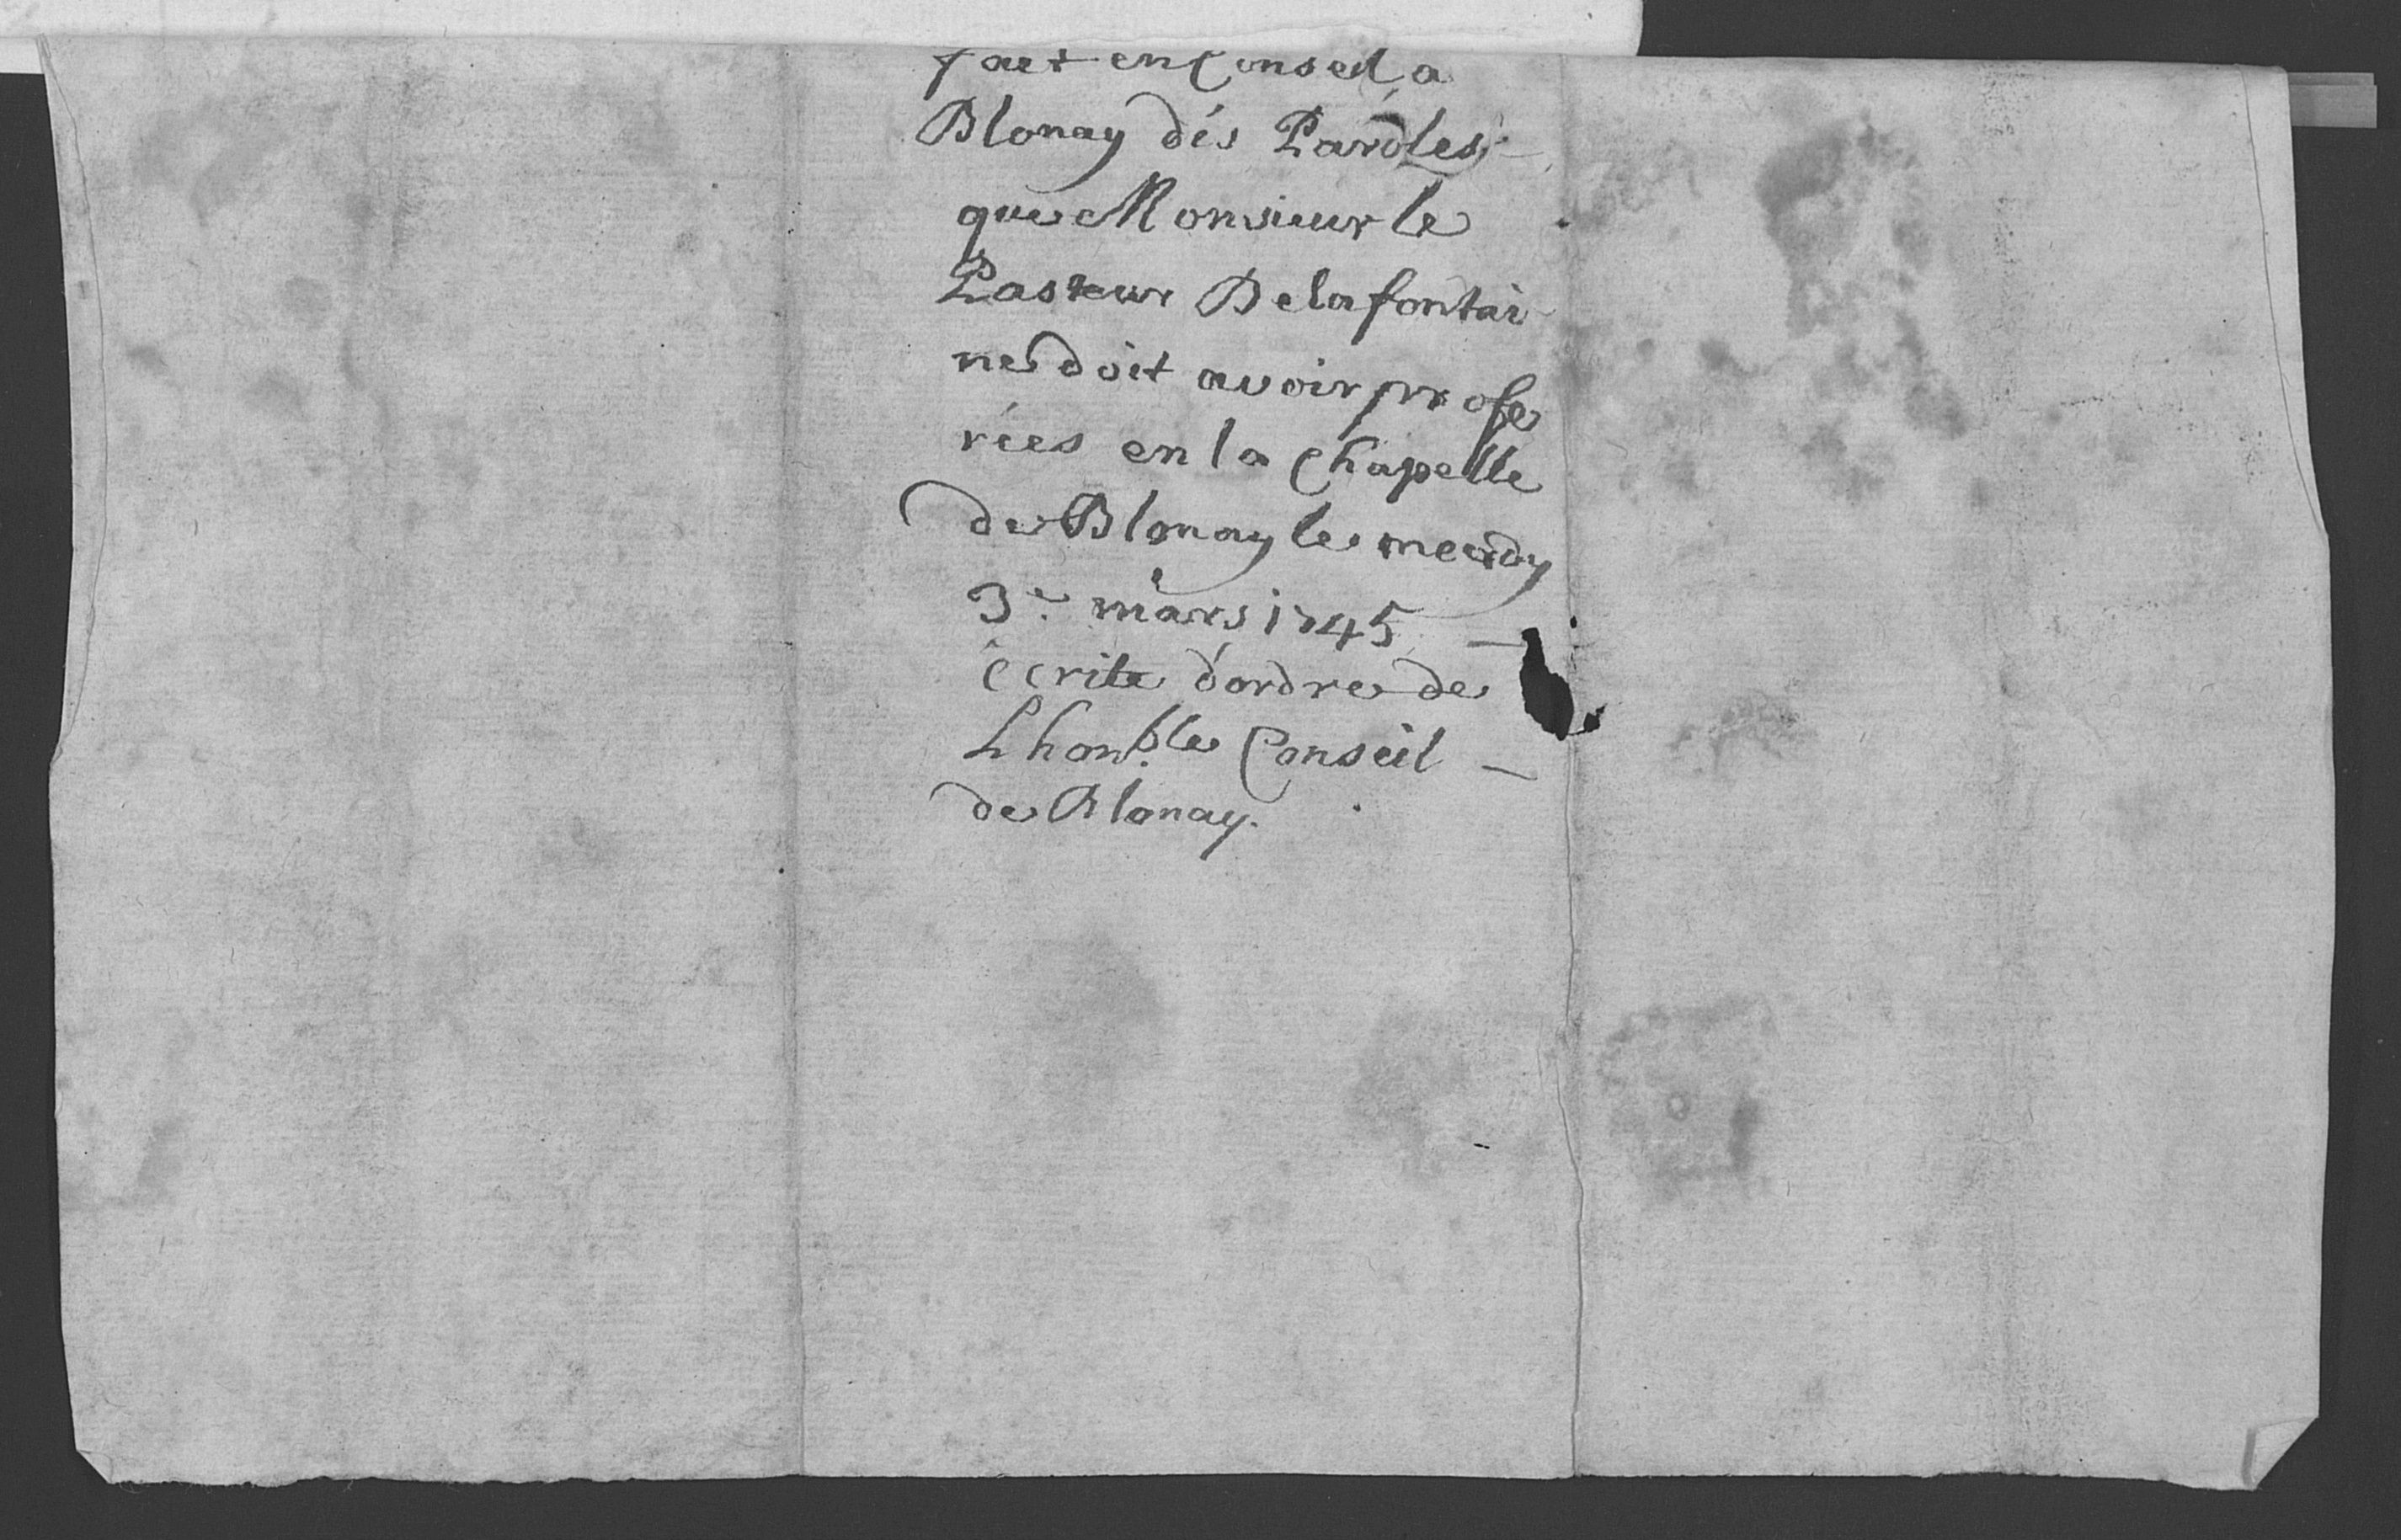 fait en Conseil a
Blonay dés Paroles
que Monsieur le
Pasteur Delafontai
ne doit avoir profe
rées en la Chapelle
de Blonay le mecrdy
3e. mars 1745 —
écrite d'ordre de
Lhon.ble Conseil —
de Blonay.